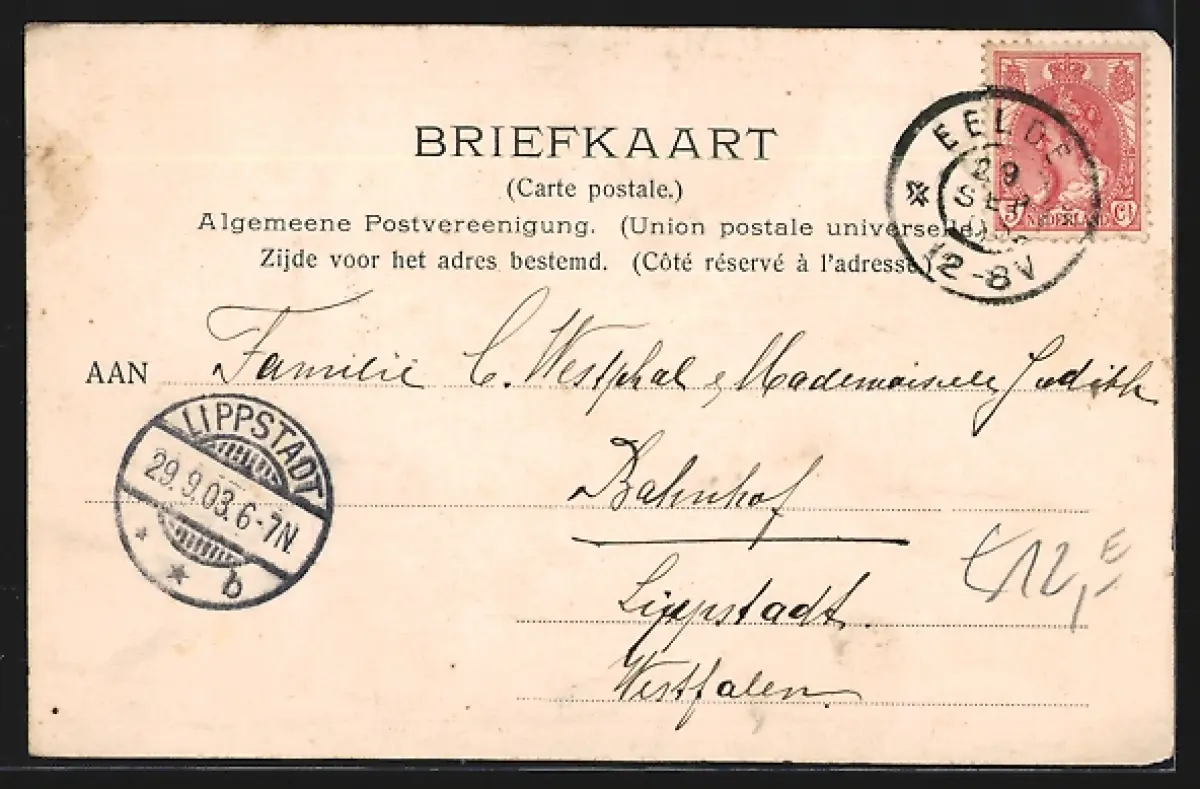 BRIEFKAART
(Carte postale.)
Algemeene Postvereeniging. (Union postale universelle.)
Zijde voor het adres bestemd. (Côté réservé à l'adresse.)
EELDE
29
SEP
12-8V
5 Ct
NEDERLAND
AAN Familie C. Westphal & Mademoiselle Judith
LIPPSTADT
29.9.03. 6-7N.
* * b
Bahnhof
Lippstadt.
Westfalen
12,-